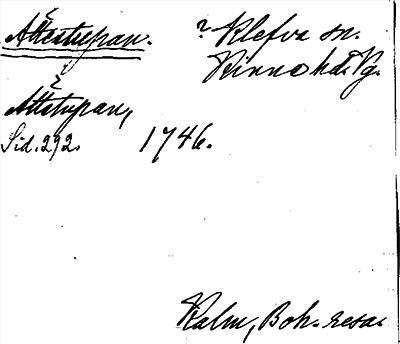 Ättestupan.
? Klefva sn.
Vinne hd. Vg.
Ättstupan,
Sid. 292. 1746.
Kalm, Boh. resa.